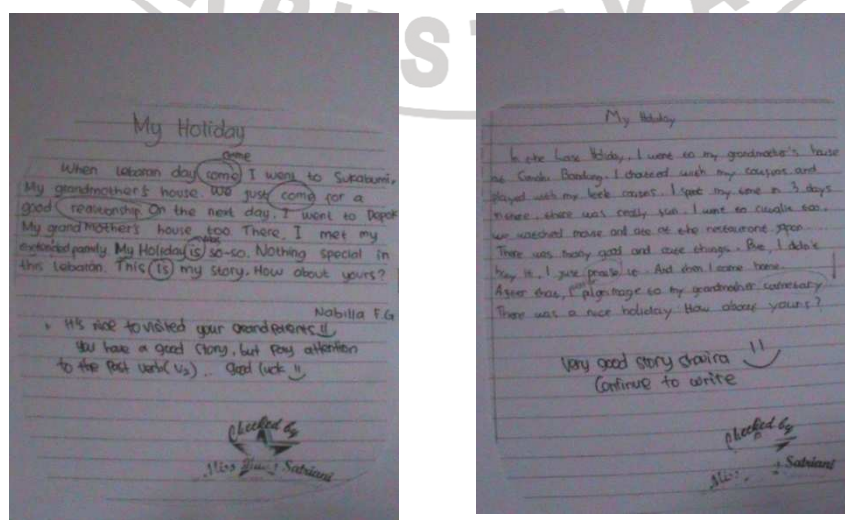 My Holiday
came
When lebaran day come I went to Sukabumi,
My grandmother's house. We just come for a
good reationship On the next day, I went to Depok
My grandmother's house too There, I met my
extended family. My Holiday is so-so. Nothing special in
this lebaran. This is my story. How about yours?
Nabilla F.G
It's nice to visited your Grandparents!!
You have a good story, but pay attention
to the past verb (V2). Good luck!!
Checked by
Miss Satriani
My Holiday
In the Last Holiday, I went to my grandmother's house
at Bandung. I chatted with my cousins and
played with my cousin. I spent my time in 3 days
there was really fun. I want to too.
we watched movie and ate at the restaurant Japan
There was many good and cute things. But, I didn't
buy it, I just it. And then I came home.
After that, I pilgrimage to my grandmother cemetary
There was a nice holiday How about yours?
Very good story
Continue to write
Checked by
Satriani